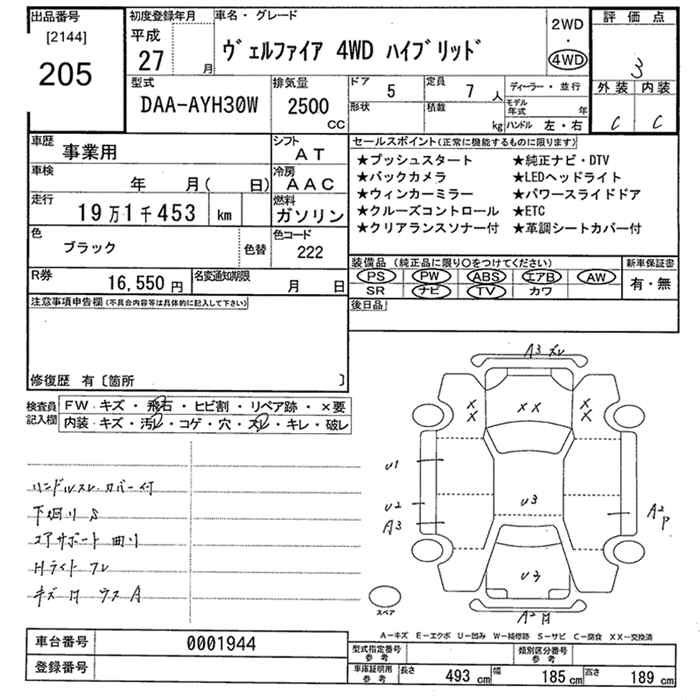 出品番号
[2144]
205
初度登録年月
平成
27
月
車名・グレード
ヴェルファイア 4WD ハイブリッド
2WD
・
4WD
評価点
3
外装 内装
C C
型式
DAA-AYH30W
排気量
2500
CC
ドア 5
定員 7 人
形状
積載 kg
ディーラー・並行
モデル年式 年
ハンドル 左・右
車歴 事業用
シフト AT
車検 年 月( 日)
冷房 AAC
走行 19万1千453 km
燃料 ガソリン
色 ブラック
色替
色コード 222
R券 16,550 円
名変通知期限 月 日
セールスポイント(正常に機能するものに限ります)
★プッシュスタート ★純正ナビ・DTV
★バックカメラ ★LEDヘッドライト
★ウィンカーミラー ★パワースライドドア
★クルーズコントロール ★ETC
★クリアランスソナー付 ★革調シートカバー付
装備品(純正品に限り○をつけてください)
PS PW ABS エアB AW
SR ナビ TV カワ
新車保証書
有・無
注意事項申告欄(不具合内容等は具体的に記入して下さい)
後日品
修復歴 有〔箇所 〕
検査員記入欄
FW キズ・飛石・ヒビ割・リペア跡・×要
内装・キズ・汚レ・コゲ・穴・スレ・キレ・破レ
ハンドルスレ.カバー付
下廻り S
コアサポート曲り
Hライト
A3
XX
XX
XX
U1
U2
A3
U3
A2 P
U3
A2
スペア
A－キズ E－エクボ U－凹み W－補修跡 S－サビ C－腐食 XX－交換済
車台番号 0001944
登録番号
型式指定番号参考
類別区分番号参考
車庫証明用参考
長さ 493 cm
幅 185 cm
高さ 189 cm